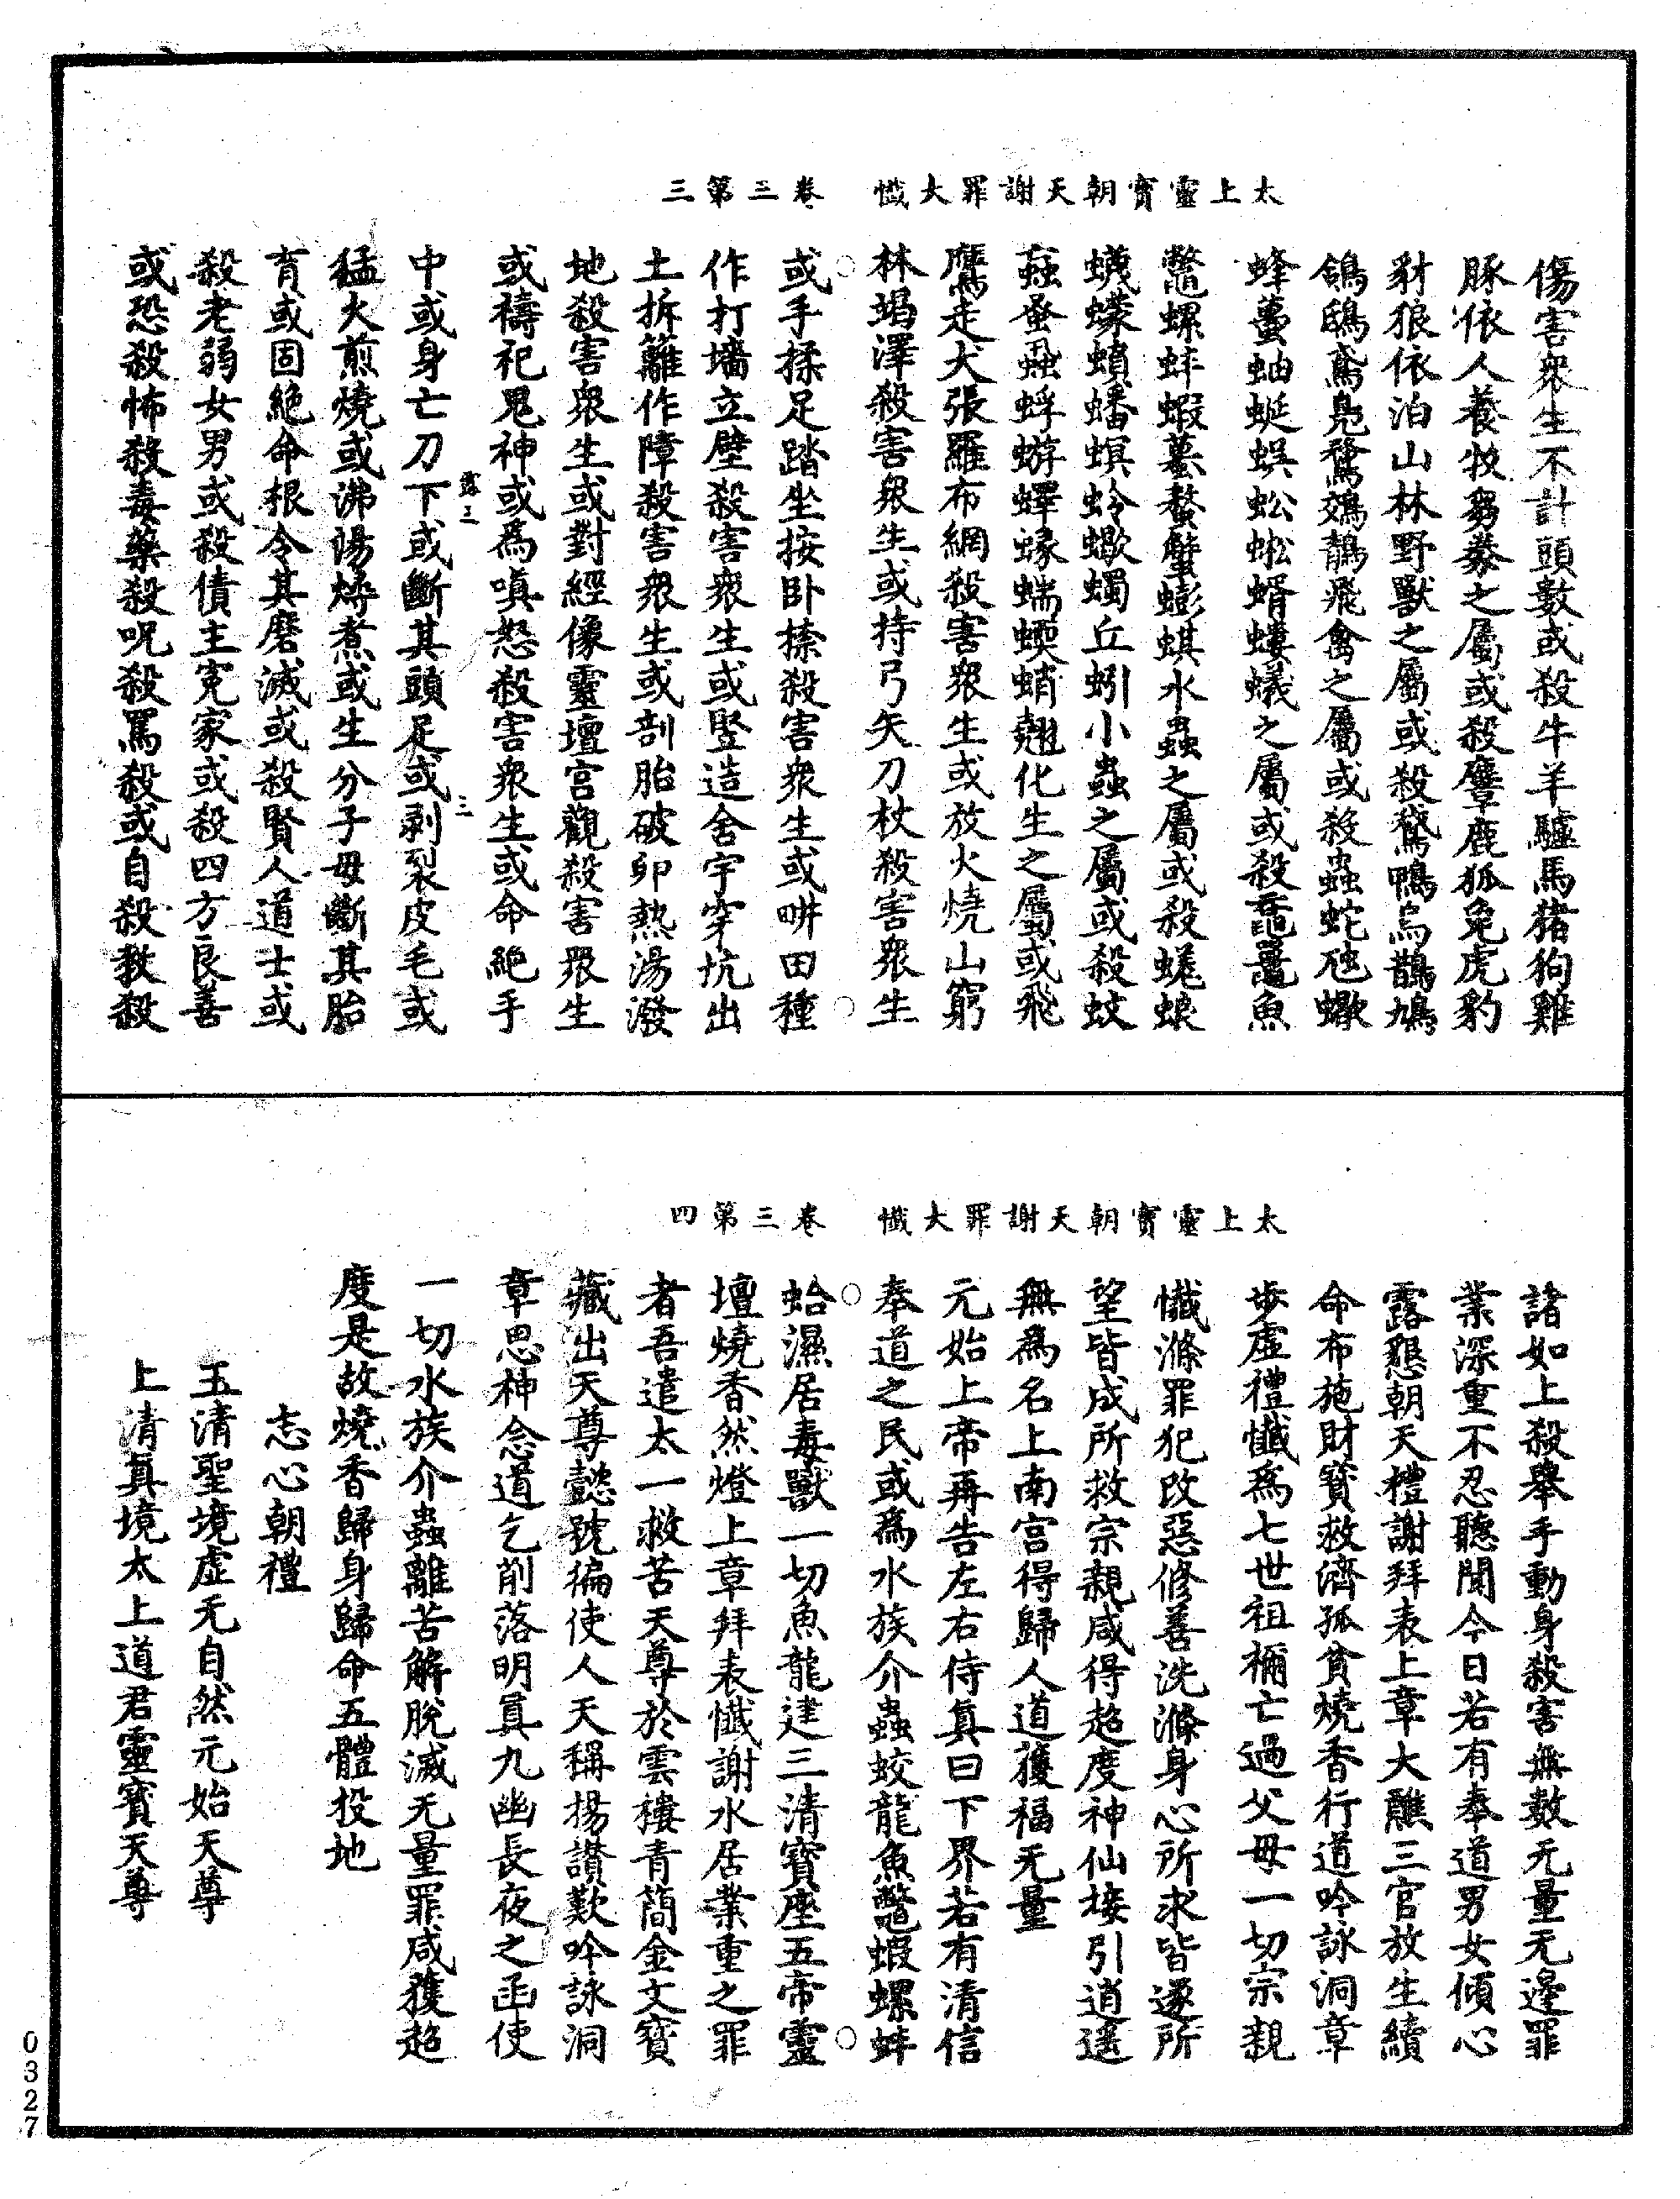 太上靈寶朝天謝罪大懺　卷三第三
傷害衆生不計頭數或殺牛羊驢馬猪狗雞
豚依人養牧芻豢之屬或殺麞鹿狐兔虎豹
豺狼依泊山林野獸之屬或殺鵞鴨烏鵲鳩
鴿鴟鳶鳧鶩鵁鶄飛禽之屬或殺蟲蛇虺蠍
蜂蠆蚰蜒蜈蚣蜥蝑螻蟻之屬或殺黿鼉魚
鼈螺蚌蝦蟇螯蟹蟛蜞水蟲之屬或殺蜣蜋
蠛蠓蟥蟠螟蛉蠍蠋丘蚓小蟲之屬或殺蚊
蝱蚤蝨蜉蝣蠌蝝蠕蝡蛸翹化生之屬或飛
鷹走犬張羅布網殺害衆生或放火燒山窮
林竭澤殺害衆生或持弓矢刀杖殺害衆生
或手揉足踏坐按卧捺殺害衆生或畊田種
作打墻立壁殺害衆生或竪造舍宇穿坑出
土拆籬作障殺害衆生或剖胎破卵熱湯潑
地殺害衆生或對經像靈壇宫觀殺害衆生
或禱祀鬼神或為嗔怒殺害衆生或命絶手
露三　三
中或身亡刀下或斷其頭足或剥裂皮毛或
猛火煎燒或沸湯燖煮或生分子母斷其胎
育或固絶命根令其磨滅或殺賢人道士或
殺老弱女男或殺債主寃家或殺四方良善
或恐殺怖殺毒藥殺呪殺罵殺或自殺教殺
太上靈寶朝天謝罪大懺　卷三第四
諸如上殺舉手動身殺害無數无量无邊罪
業深重不忍聽聞今日若有奉道男女傾心
露懇朝天禮謝拜表上章大醮三官放生續
命布施財寶救濟孤貧燒香行道吟詠洞章
步虛禮懺爲七世祖禰亡過父母一切宗親
懺滌罪犯改惡修善洗滌身心所求皆遂所
望皆成所救宗親咸得超度神仙接引逍遥
無為名上南宫得歸人道獲福无量
元始上帝再告左右侍真曰下界若有清信
奉道之民或為水族介蟲蛟龍魚鼈蝦螺蚌
蛤濕居毒獸一切魚龍建三清寶座五帝靈
壇燒香然燈上章拜表懺謝水居業重之罪
者吾遣太一救苦天尊於雲樓青簡金文寶
藏出天尊懿號徧使人天稱揚讃歎吟詠洞
章思神念道乞削落明真九幽長夜之函使
一切水族介蟲離苦解脫滅无量罪咸獲超
度是故燒香歸身歸命五體投地
志心朝禮
玉清聖境虛无自然元始天尊
上清真境太上道君靈寶天尊
0327